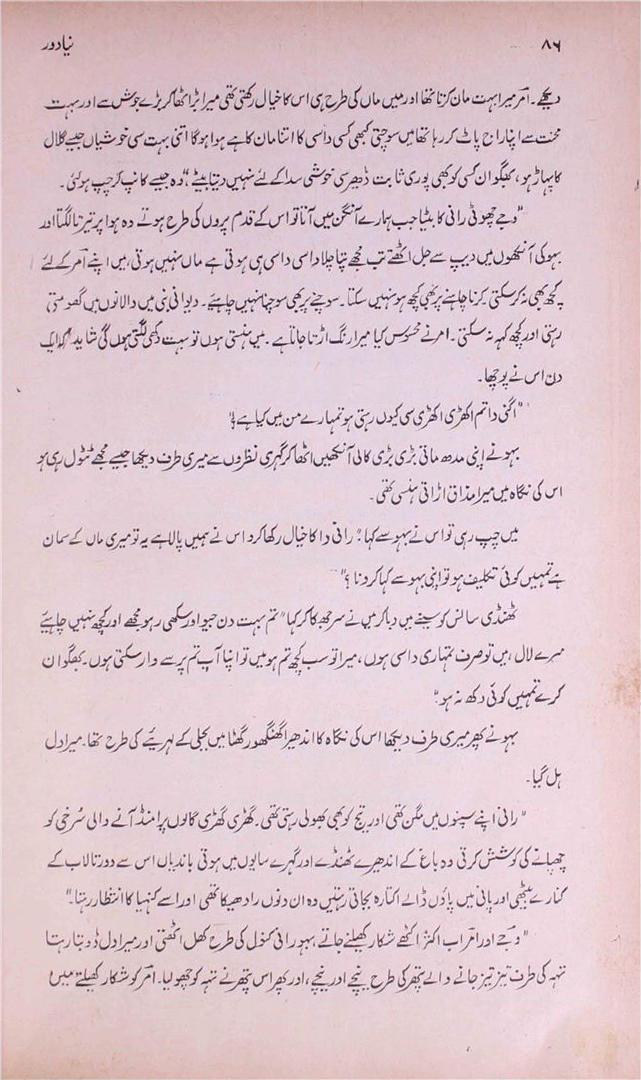 ۸۶ نیا دور
دیکھے۔ امر میرا بہت مان کرتا تھا اور میں ماں کی طرح ہی اس کا خیال رکھتی تھی میرا بڑا ٹھاکر بڑے جوش سے اور بہت
محنت سے اپنا راج پاٹ کر رہا تھا میں سوچتی کبھی کسی داسی کا اتنا مان کاہے ہوا ہوگا اتنی بہت سی خوشیاں جیسے گلال
کا پہاڑ ہو، بھگوان کسی کو بھی پوری ثابت ڈھیر سی خوشی سدا کے لئے نہیں دیتا بیٹے“ وہ جیسے کانپ کر چپ ہو گئی۔
”وجے چھوٹی رانی کا بیٹا جب ہمارے آنگن میں آتا تو اس کے قدم پروں کی طرح ہوتے وہ ہوا پر تیرتا لگتا اور
بہو کی آنکھوں میں دیپ سے جل اٹھتے تب مجھے پتا چلا داسی داسی ہی ہوتی ہے ماں نہیں ہوتی، میں اپنے امر کے لئے
کچھ بھی نہ کر سکتی۔ کرنا چاہنے پر بھی کچھ ہو نہیں سکتا۔ سوچنے پر بھی سوچنا نہیں چاہیئے۔ دیوانی بنی میں دالانوں میں گھومتی
رہتی اور کچھ کہہ نہ سکتی۔ امر نے محسوس کیا میرا رنگ اڑتا جاتا ہے۔ میں ہنستی ہوں تو بہت دکھی لگتی ہوں گی شاید اک ایک
دن اس نے پوچھا۔
”اگنی دا تم اکھڑی اکھڑی سی کیوں رہتی ہو تمہارے من میں کیا ہے؟“
بہو نے اپنی مدھ ماتی بڑی بڑی کالی آنکھیں اٹھا کر گہری نظروں سے میری طرف دیکھا جیسے مجھے ٹٹول رہی ہو
اس کی نگاہ میں میرا مذاق اڑاتی ہنسی تھی۔
میں چپ رہی تو اس نے بہو سے کہا ”رانی دا کا خیال رکھا کرو اس نے ہمیں پالا ہے یہ تو میری ماں کے سمان
ہے تمہیں کوئی تکلیف ہو تو اپنی بہو سے کہا کرو نا؟“
ٹھنڈی سانس کو سینے میں دبا کر میں نے سر جھکا کر کہا ”تم بہت دن جیو اور سکھی رہو مجھے اور کچھ نہیں چاہیئے
میرے لال، میں تو صرف تمہاری داسی ہوں، میرا تو سب کچھ تم ہو میں تو اپنا آپ تم پر سے وار سکتی ہوں۔ بھگوان
کرے تمہیں کوئی دکھ نہ ہو“
بہو نے پھر میری طرف دیکھا اس کی نگاہ کا اندھیرا گھنگھور گھٹا میں بجلی کے لہریئے کی طرح تھا۔ میرا دل
ہل گیا۔
”رانی اپنے سپنوں میں مگن تھی اور تیج کو بھی بھولی رہتی تھی۔ گھڑی گھڑی گالوں پر امنڈ آنے والی سُرخی کو
چھپانے کی کوشش کرتی وہ باغ کے اندھیرے ٹھنڈے اور گہرے سایوں میں ہوتی باندیاں اس سے دور تالاب کے
کنارے بیٹھی اور پانی میں پاؤں ڈالے اکتارہ بجاتی رہتیں وہ ان دنوں رادھیکا تھی اور اسے کنہیا کا انتظار رہتا۔“
”وجے اور امر اب اکثر اکٹھے شکار کھیلنے جاتے، بہو رانی کنول کی طرح کھل اٹھتی اور میرا دل ڈوبتا رہتا
تہہ کی طرف تیز تیز جانے والے پتھر کی طرح نیچے اور نیچے، اور پھر اس پتھر نے تہہ کو چھو لیا۔ امر کو شکار کھیلتے میں